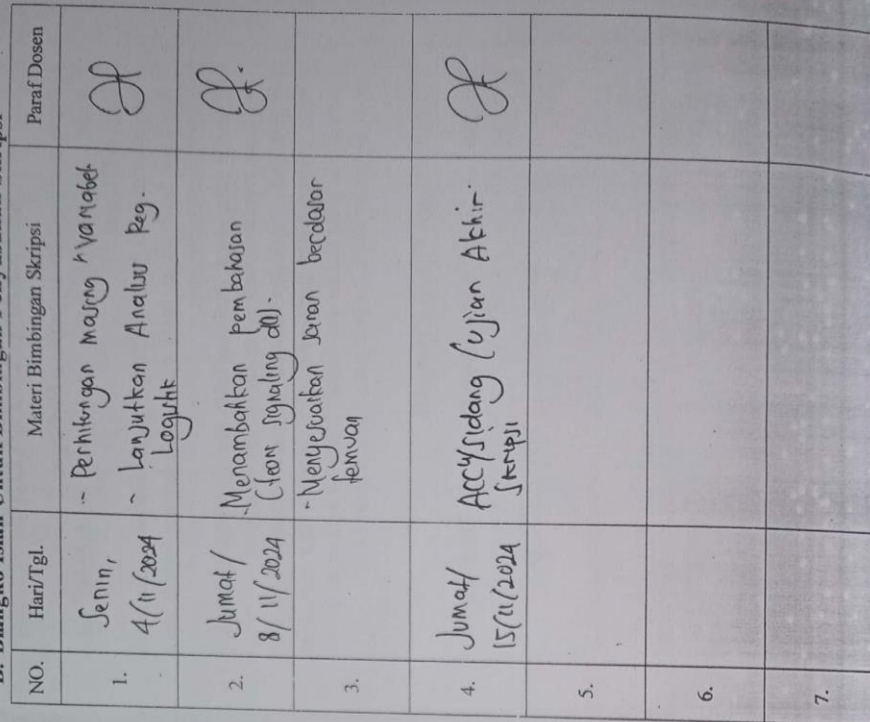 NO. Hari/Tgl. Materi Bimbingan Skripsi Paraf Dosen
1. Senin, 4/11/2024
- Perhitungan masing² variabel
- Lanjutkan Analisis Reg.
Logistik
2. Jumat/ 8/11/2024
- Menambahkan pembahasan
(teori signaling dll).
3.
- Menyesuaikan saran berdasar
temuan
4. Jumat/ 15/11/2024
ACC Sidang (Ujian Akhir
Skripsi
5.
6.
7.